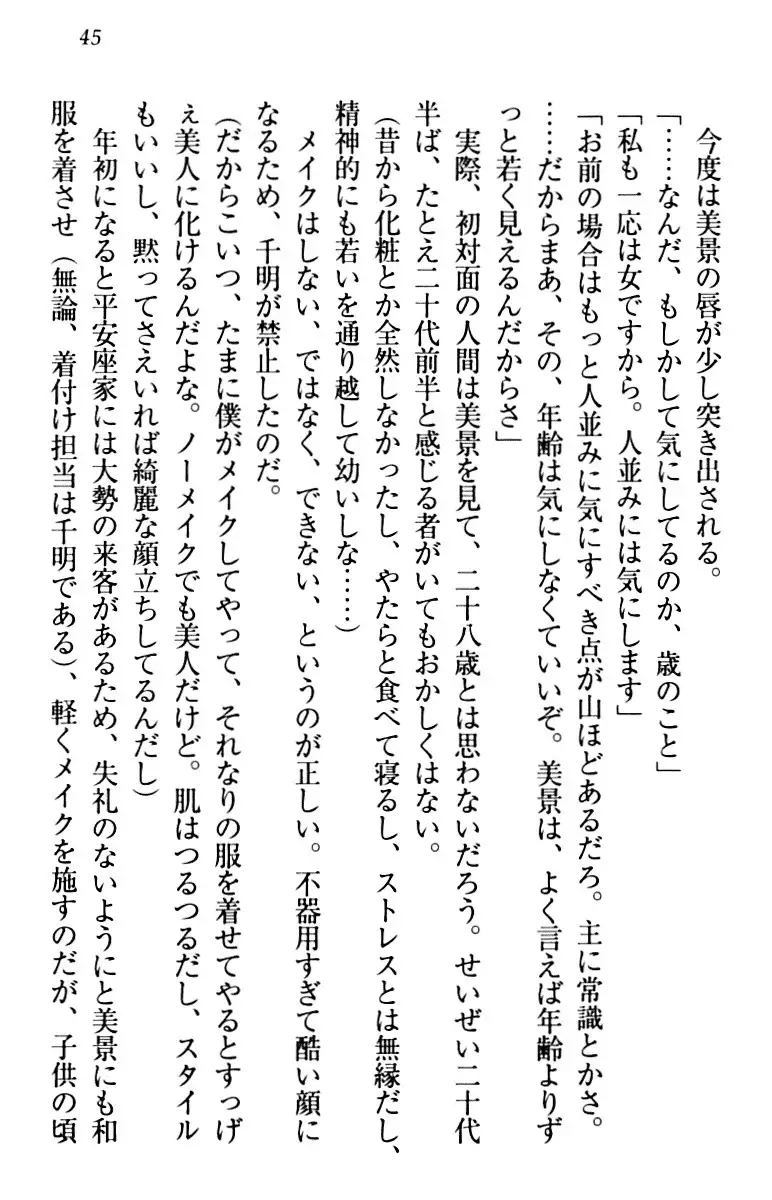 45
今度は美景の唇が少し突き出される。
「……なんだ、もしかして気にしてるのか、歳のこと」
「私も一応は女ですから。人並みには気にします」
「お前の場合はもっと人並みに気にすべき点が山ほどあるだろ。主に常識とかさ。
……だからまあ、その、年齢は気にしなくていいぞ。美景は、よく言えば年齢よりず
っと若く見えるんだからさ」
実際、初対面の人間は美景を見て、二十八歳とは思わないだろう。せいぜい二十代
半ば、たとえ二十代前半と感じる者がいてもおかしくはない。
（昔から化粧とか全然しなかったし、やたらと食べて寝るし、ストレスとは無縁だし、
精神的にも若いを通り越して幼いしな……）
メイクはしない、ではなく、できない、というのが正しい。不器用すぎて酷い顔に
なるため、千明が禁止したのだ。
（だからこいつ、たまに僕がメイクしてやって、それなりの服を着せてやるとすっげ
ぇ美人に化けるんだよな。ノーメイクでも美人だけど。肌はつるつるだし、スタイル
もいいし、黙ってさえいれば綺麗な顔立ちしてるんだし）
年初になると平安座家には大勢の来客があるため、失礼のないようにと美景にも和
服を着させ（無論、着付け担当は千明である）、軽くメイクを施すのだが、子供の頃